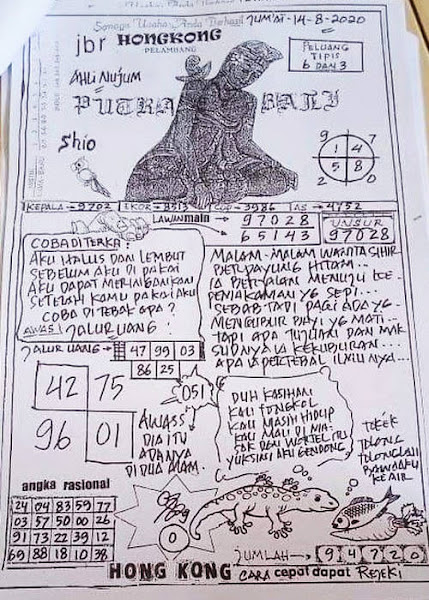 Semoga Usaha Anda Berhasil
JUM'AT-14-8-2020
jbr HONGKONG
PELAMBANG
PELUANG
TIPIS
6 DAN 3
AHLI NUJUM
PUTRA BALI
Shio
9 7
1 4
5 8
2 0
KEPALA = 9702
EKOR = 8513
COP = 3986
AS = 4752
LAWAN main
97028
65143
UNSUR
97028
COBA DI TERKA:
AKU HALUS DAN LEMBUT
SEBELUM AKU DI PAKAI
AKU DAPAT MERINGANKAN
SETELAH KAMU PAKAI AKU
COBA DI TEBAK APA?
AWAS! JALUR UANG!
MALAM-MALAM WANITA SIHIR
BERPAYUNG HITAM..
IA BERJALAN MENUJU KE.
PEMAKAMAN YG SEPI...
SEBAB TADI PAGI ADA YG.
MENGUBUR BAYI YG MATI..
TAPI ADA TUJUAN DAN MAK
SUDNYA IA KEKUBURAN...
APA IA PERTEBAL ILMUNYA...
JALUR UANG
47 99 03
86 25
42 75
96 01
051
AWASS
DIA ITU
ADANYA
DI DUA ALAM.
DUH KASIHAN
KAU TONGKOL
KAU MASIH HIDUP
YUK SINI AKU GENDONG
TOKEK
TOLONG
BAWA AKU
KE AIR
angka rasional
24 04 83 59 77
03 57 50 00 26
91 73 22 39 12
69 88 18 10 38
0
JUMLAH
94720
HONG KONG CARA cepat dapat REJEKI